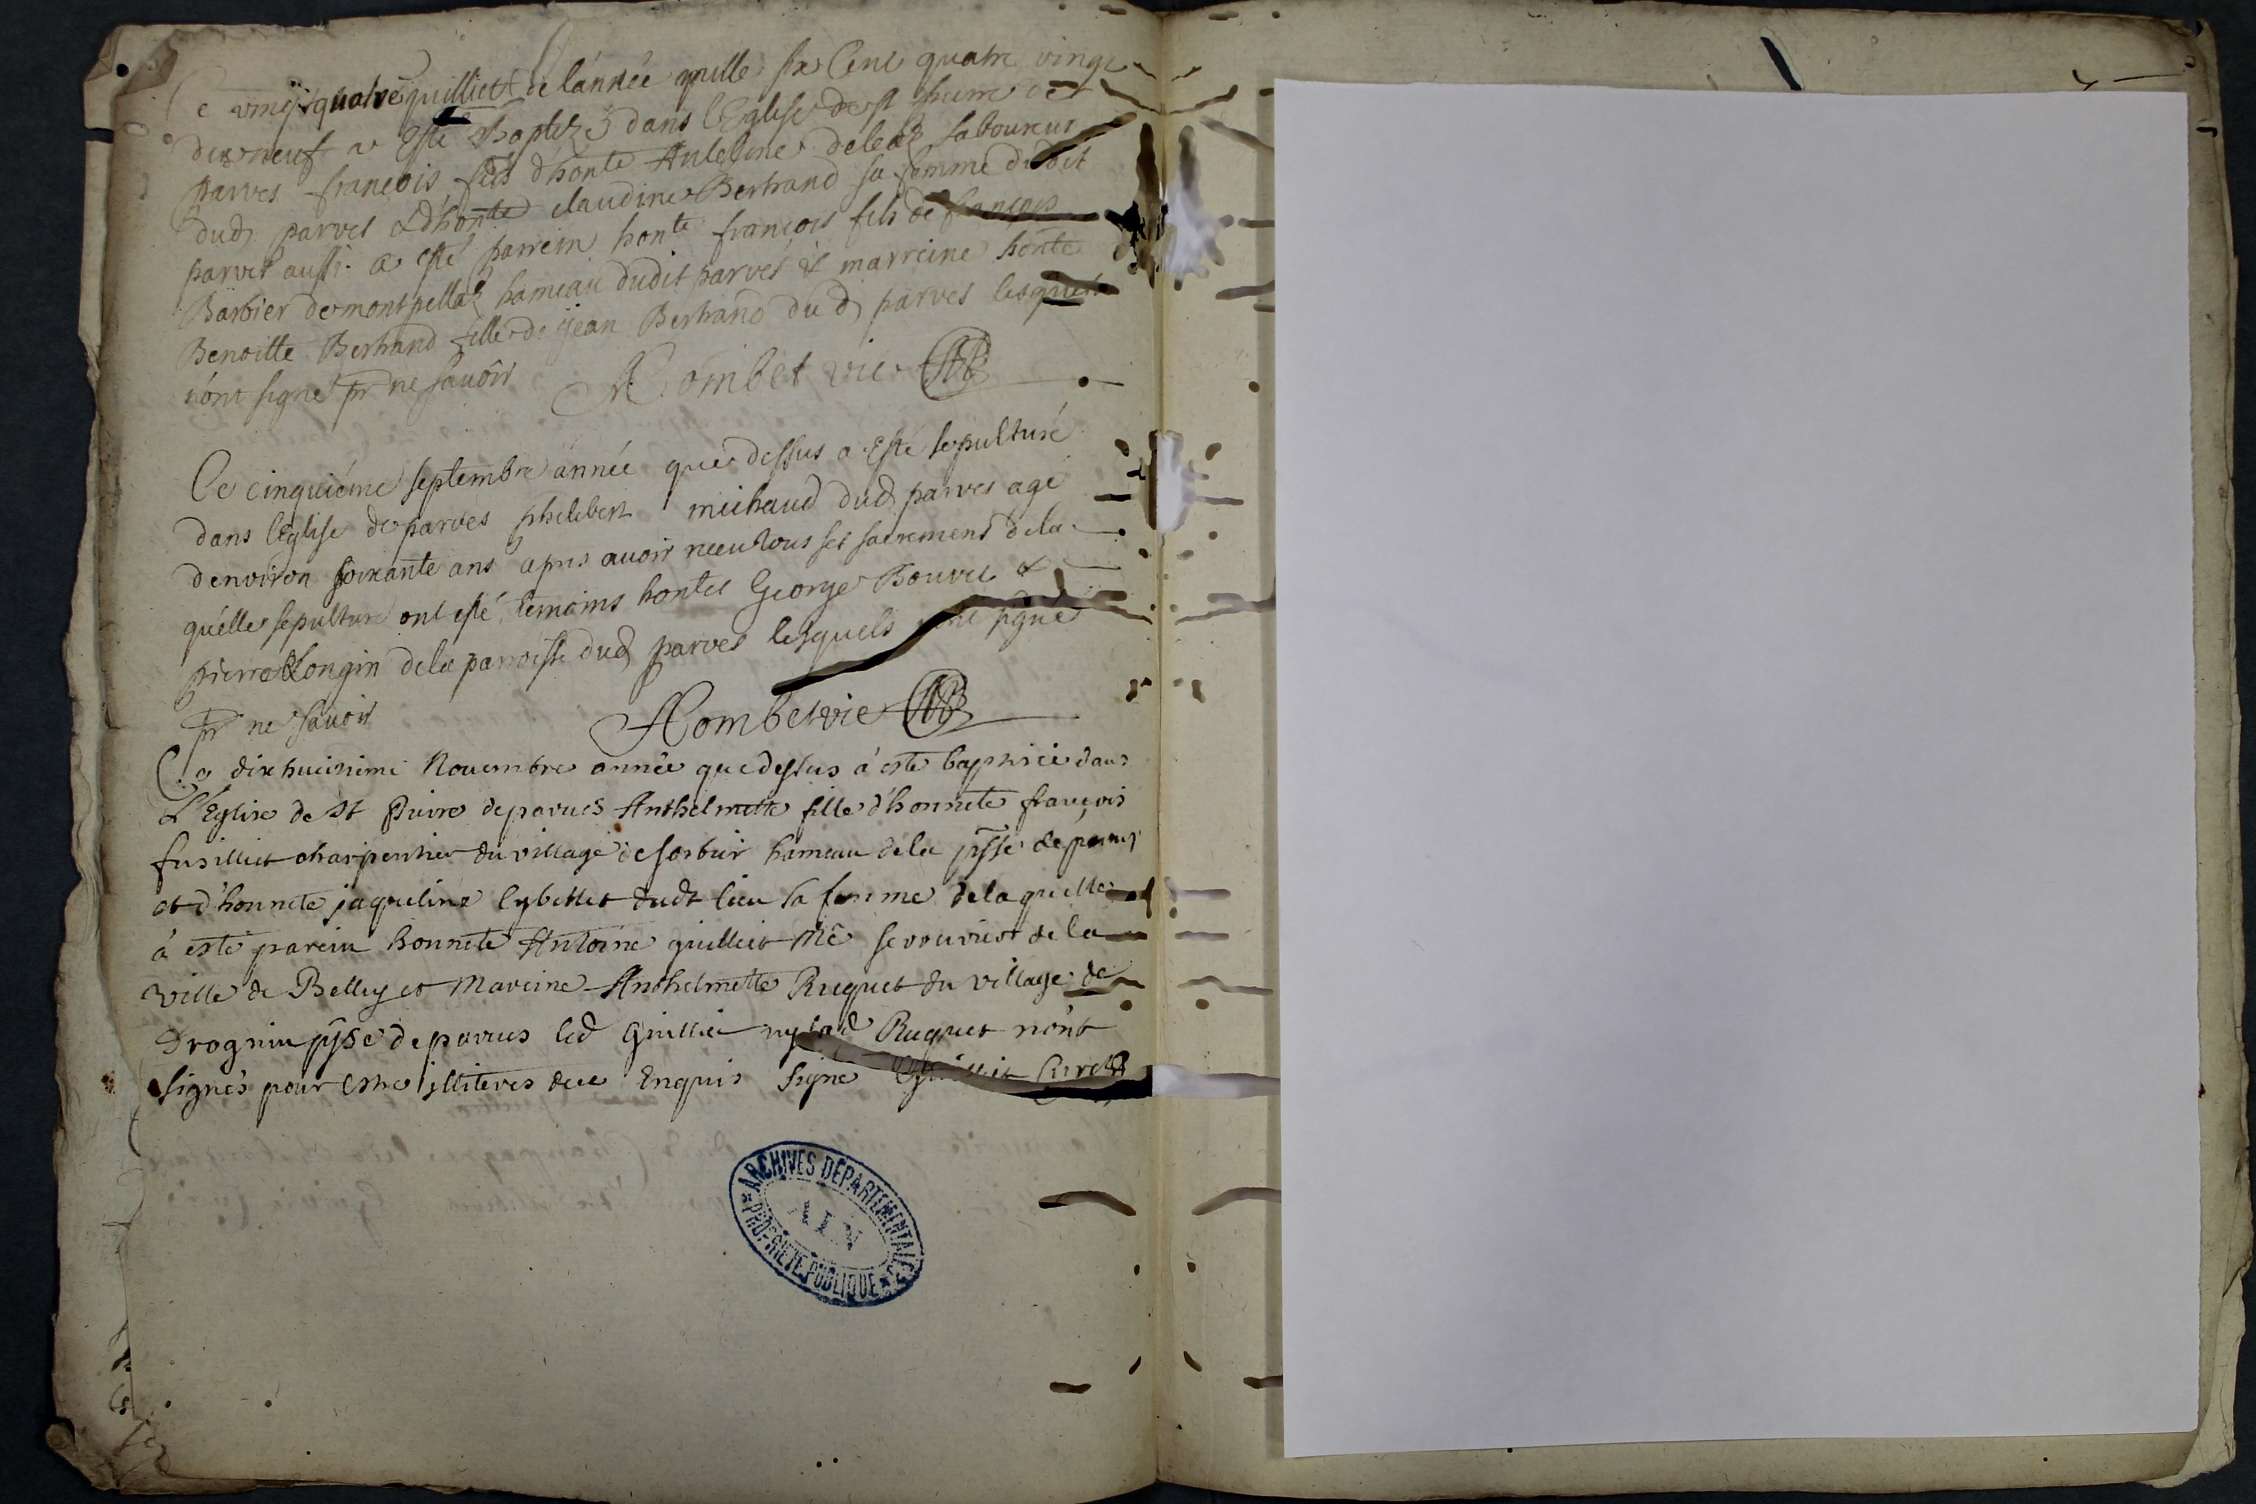 Ce vingt quatre juilliet de lánnée mille six Cent quatre vingt
dixneuf a Esté Baptizé dans lEglise de st pierre de
parves francois fils dhonte Antelme deleaz laboureur
dud parves & dhonte claudine Bertrand sa femme dudit
parves aussi a esté parrein honte francois fils de francois
Barbier de montpellaz hameau dudit parves & marreine honte
Benoitte Bertrand fille de jean Bertrand dud parves lesquels
nónt signé pr ne sauoir Combet vic
Ce cinquiéme septembre année que dessus a Esté sepulturé
dans lEglise de parves philebert michaud dud parves agé
denviron soixante ans apres auoir receu tous ses sacremens dela
quélle sepulture ont esté temoins hontes George Bouvet &
pierre Longin dela parroisse dud parves lesquels nont signé
pr ne sauoir Combet vic
Ce dix huictieme Nouembre année que dessus à esté baptisée dans
L'Eglise de St Pierre de parues Anthelmette fille d'honnete françois
fusilliet charpentier du village de sorbier hameau de la psse de parues
et d'honnete jaqueline lybellet dudt lieu sa femme de laquelle
à esté parein honnete Antoine guilliet Mê serrurier de la
ville de Belley et Mareine Anthelmette Ruquet du village de
Drognin psse de parues led Guilliet ny lad Ruquet n'ont
signés pour estre illiteres de ce Enquis signé Guilliet Curé
ARCHIVES DÉPARTEMENTALES
AIN
PROPRIETE PUBLIQUE